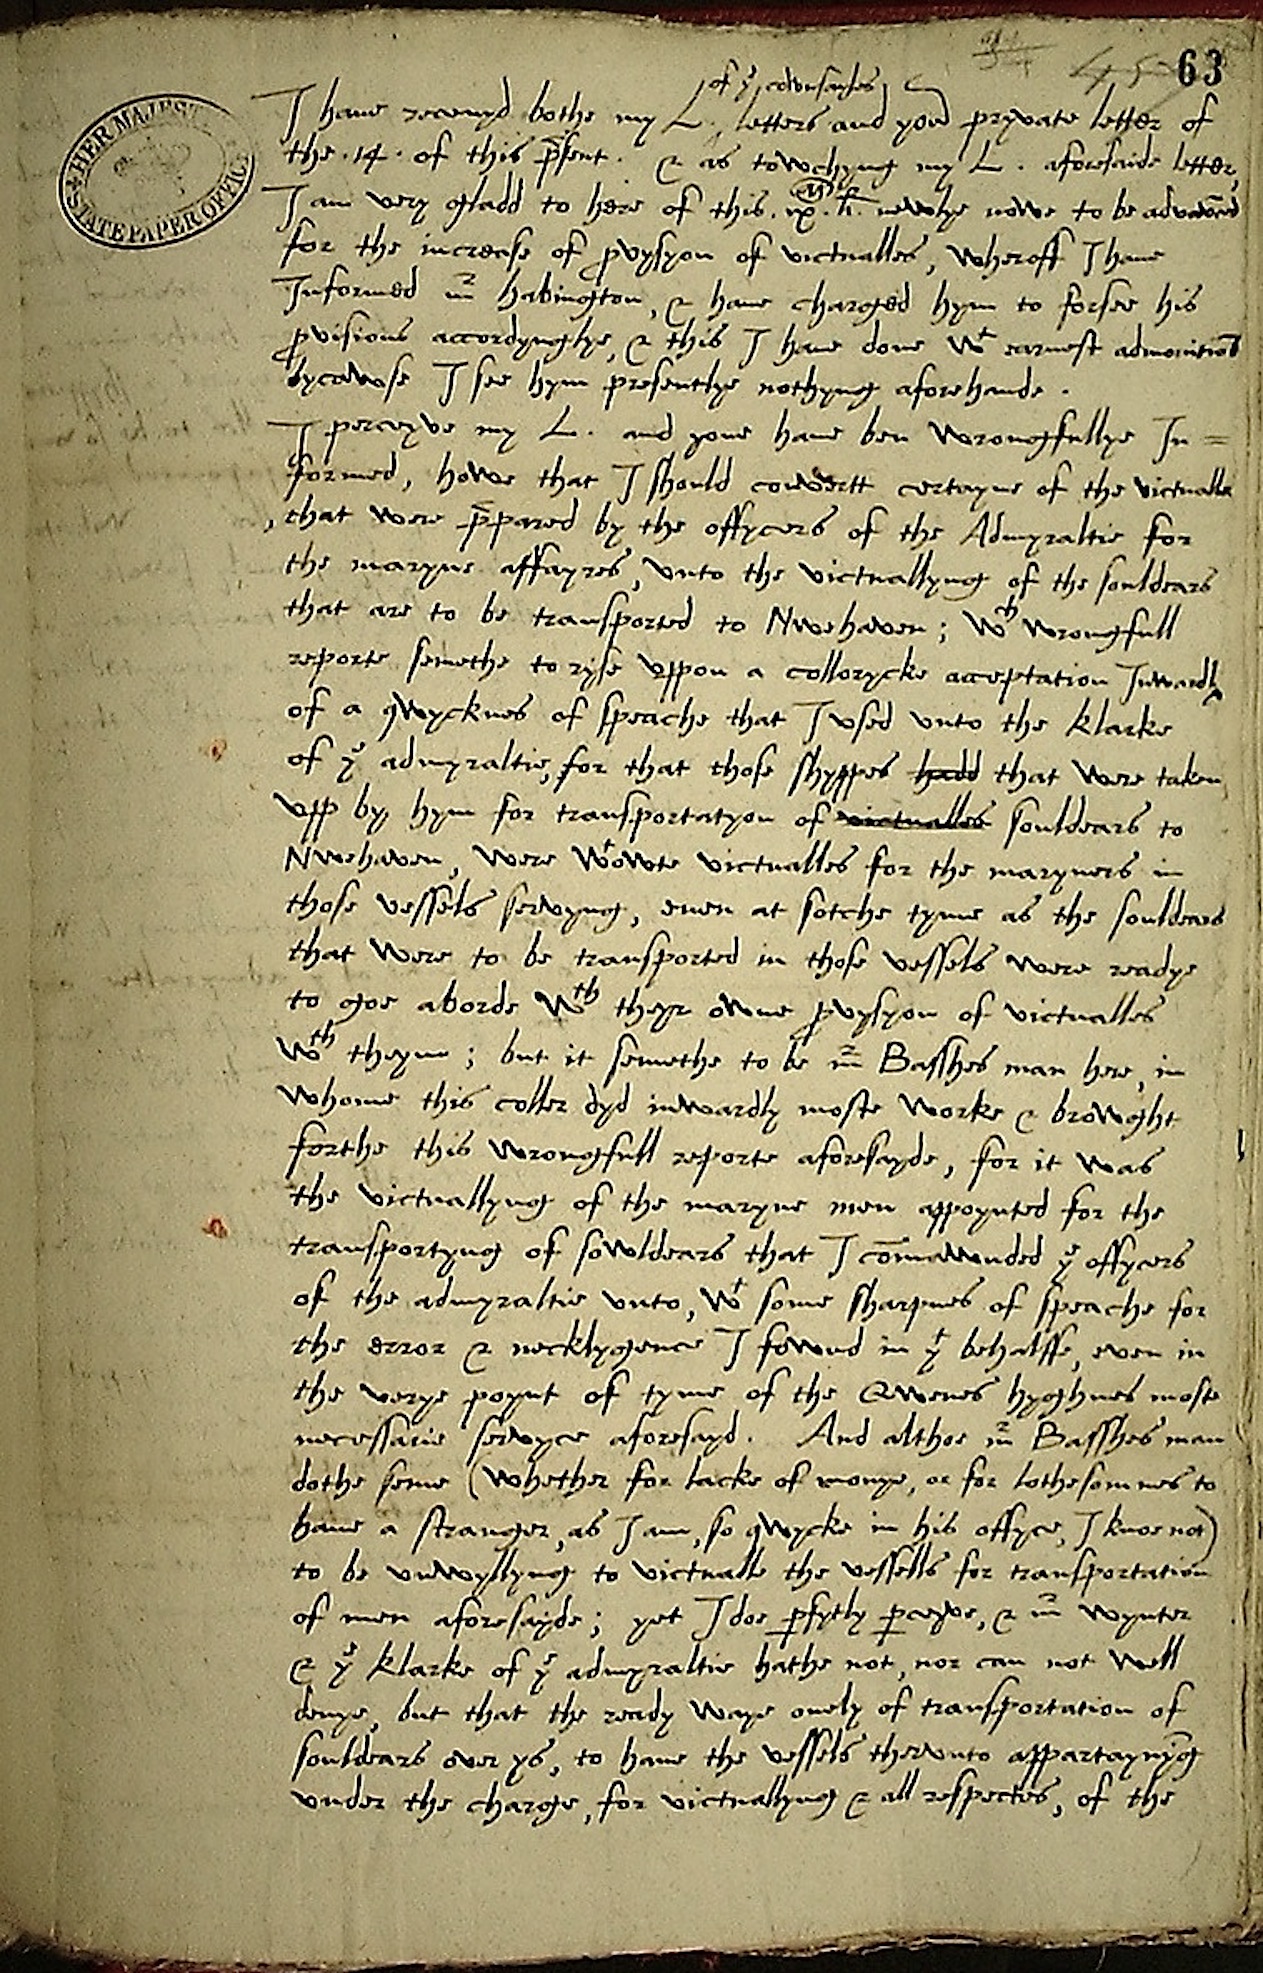 63
of yᵉ cownsayles
I haue receuyd bothe my L. letters and your pryvate letter of
the .14. of this p̄sent. & as towchyng my L. aforesaide letter,
I am very gladd to here of this .ix. ᴹ li. newlye nowe to be advanced
for the increase of pvysyon of victualles, wheroff I haue
Informed mr habington, & haue charged hym to forsee his
pvisions accordynglye, & this I haue done wt earnest admonition
bycawse I see hym presentlye nothyng aforehande.
I perceyve my L. and youe haue ben wrongfullye In=
formed, howe that I should convertt certayne of the victualls
that were p̄pared by the offycers of the Admyraltie for
the maryne affayres, vnto the victuallyng of the souldears
that are to be transported to Nwehaven; wch wrongfull
reporte semethe to ryse vppon a collorycke acceptation Inwardly
of a qwycknes of speache that I vsed vnto the klarke
of yᵉ admyraltie, for that those shyppes hadd that were taken
vpp by hym for transportatyon of victualles souldears to
Nwehaven, were wtowte victualles for the maryners in
those vessels servyng, even at sotche tyme as the souldears
that were to be transported in those vessels were readye
to goe aborde wth theyr owne pvysyon of victualles
wth theym; but it semethe to be mr Basshes man here, in
whome this coller dyd inwardly moste worke & browght
forthe this wrongfull reporte aforesayde, for it was
the victuallyng of the maryne men appoynted for the
transportyng of sowldears that I com̄awnded yᵉ offycers
of the admyraltie vnto, wt some sharpnes of speache for
the error & necklygence I fownd in yt behalffe, even in
the verye poynt of tyme of the Qwenes hyghnes moste
necessarie servyce aforesayd. And althoe mr Basshes man
dothe seme (whether for lacke of monye, or for lothesomnes to
haue a stranger, as I am, so qwycke in his offyce, I knoe not)
to be vnwyllyng to victualle the vessells for transportation
of men aforesayde; yet I doe pfytly pceyve, & mr wynter
& yᵉ klarke of yᵉ admyraltie hathe not, nor can not well
denye, but that the ready waye onely of transportation of
souldears over ys, to haue the vessels thervnto appartaynyng
vnder the charge, for victuallyng & all respectes, of the
HER MAJESTY'S
STATE PAPER OFFICE